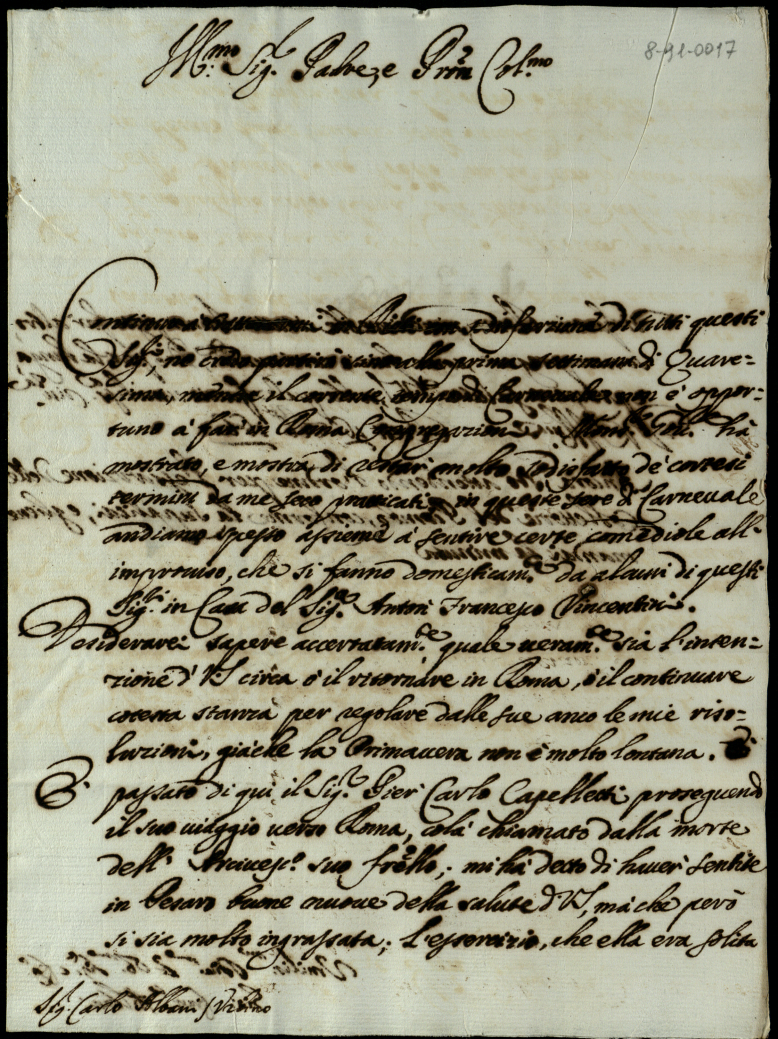 8-91-0017
Ill.mo Sig.r Padre, e Pron Col.mo
Continua a di tutti questi
Sig.ri, ne credo partirà sino alla prima settimana di Quare=
sima, mentre il corrente tempo di Carnevale non è oppor=
tuno à far in Roma Congregazioni. Mons.r Gov.re hà
mostrato, e mostra di restar molto sodisfatto de' cortesi
termini da me seco praticati; in queste sere di Carnevale
andiamo spesso assieme à sentire certe comediole all'
improviso, che si fanno domesticam.te da alcuni di questi
Sig.ri in Casa del Sig.r Anton Francesco Vincentini.
Desiderarei sapere accertatam.te quale veram.te sia l'inten=
zione d' VS circa ò il ritornare in Roma, ò il continuare
cotesta stanza per regolare dalle sue anco le mie riso=
luzioni, giache la Primavera non è molto lontana.
È passato di qui il Sig.r Pier Carlo Capelletti proseguendo
il suo viaggio verso Roma, colà chiamato dalla morte
dell' Arcivesc.o suo fr̃ello; mi hà detto di haver sentite
in Pesaro buone nuove della salute d' VS, mà che però
si sia molto ingrassata; L'essercizio, che ella era solita
Sig.r Carlo Albani / Urbino